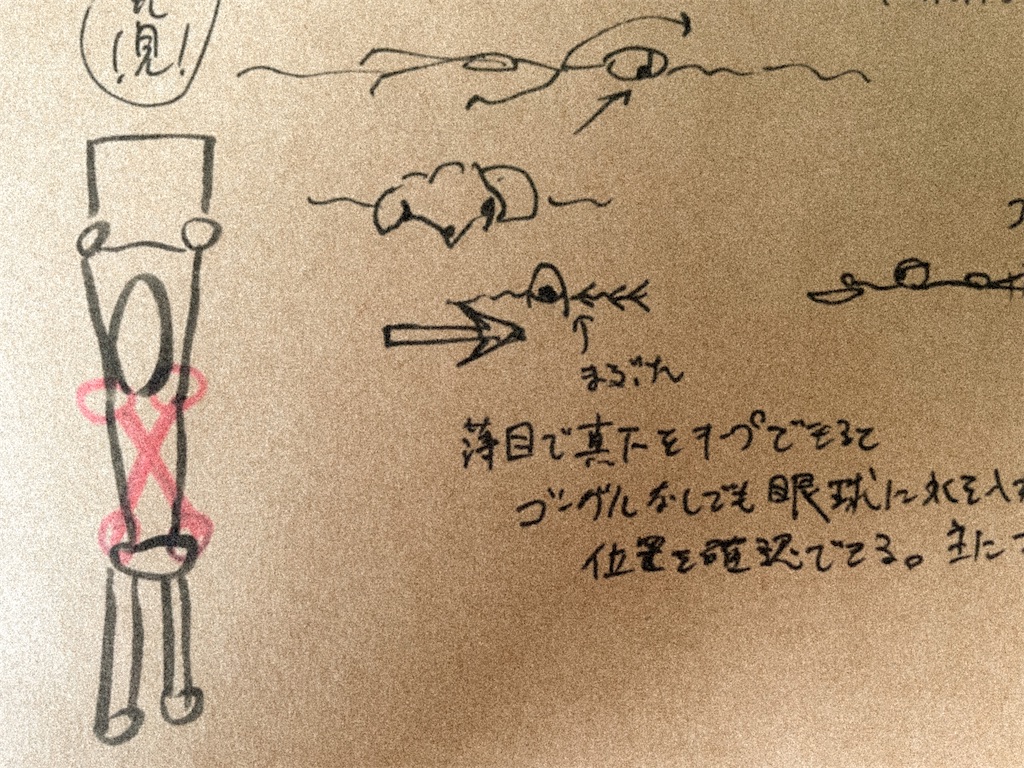 見!
まぶた
薄目で真下をキープできると
ゴーグルなしでも眼球に水を入
位置を確認できる。主に